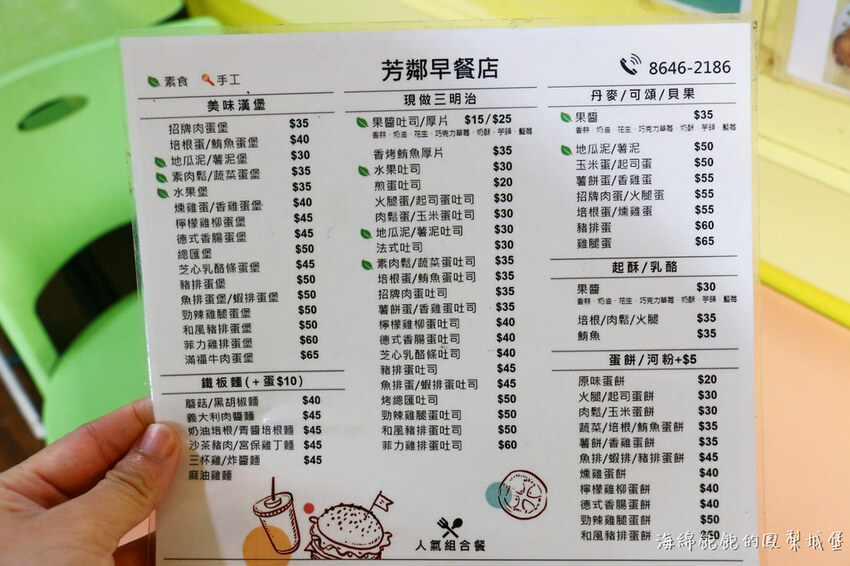 素食 手工
芳鄰早餐店
8646-2186
美味漢堡
招牌肉蛋堡 $35
培根蛋/鮪魚蛋堡 $40
地瓜泥/薯泥堡 $30
素肉鬆/蔬菜蛋堡 $35
水果堡 $35
燻雞蛋/香雞蛋堡 $40
檸檬雞柳蛋堡 $45
德式香腸蛋堡 $45
總匯堡 $50
芝心乳酪條蛋堡 $45
豬排蛋堡 $50
魚排蛋堡/蝦排蛋堡 $50
勁辣雞腿蛋堡 $50
和風豬排蛋堡 $50
菲力雞排蛋堡 $60
滿福牛肉蛋堡 $65
鐵板麵(+蛋$10)
蘑菇/黑胡椒麵 $40
義大利肉醬麵 $45
奶油培根/青醬培根麵 $45
沙茶豬肉/宮保雞丁麵 $45
三杯雞/炸醬麵 $45
麻油雞麵
現做三明治
果醬吐司/厚片 $15/$25
香蒜、奶油、花生、巧克力草莓、奶酥、芋頭、藍莓
香烤鮪魚厚片 $35
水果吐司 $30
煎蛋吐司 $20
火腿蛋/起司蛋吐司 $30
肉鬆蛋/玉米蛋吐司 $30
地瓜泥/薯泥吐司 $30
法式吐司 $30
素肉鬆/蔬菜蛋吐司 $35
培根蛋/鮪魚蛋吐司 $35
招牌肉蛋吐司 $35
薯餅蛋/香雞蛋吐司 $35
檸檬雞柳蛋吐司 $40
德式香腸蛋吐司 $40
芝心乳酪條吐司 $40
豬排蛋吐司 $45
魚排蛋/蝦排蛋吐司 $45
烤總匯吐司 $50
勁辣雞腿蛋吐司 $50
和風豬排蛋吐司 $50
菲力雞排蛋吐司 $60
人氣組合餐
丹麥/可頌/貝果
果醬 $35
香蒜、奶油、花生、巧克力草莓、奶酥、芋頭、藍莓
地瓜泥/薯泥 $50
玉米蛋/起司蛋 $50
薯餅蛋/香雞蛋 $55
招牌肉蛋/火腿蛋 $55
培根蛋/燻雞蛋 $55
豬排蛋 $60
雞腿蛋 $65
起酥/乳酪
果醬 $30
香蒜、奶油、花生、巧克力草莓、奶酥、芋頭、藍莓
培根/肉鬆/火腿 $35
鮪魚 $35
蛋餅/河粉+$5
原味蛋餅 $20
火腿/起司蛋餅 $30
肉鬆/玉米蛋餅 $30
蔬菜/培根/鮪魚蛋餅 $35
薯餅/香雞蛋餅 $35
魚排/蝦排/豬排蛋餅 $45
燻雞蛋餅 $40
檸檬雞柳蛋餅 $40
德式香腸蛋餅 $40
勁辣雞腿蛋餅 $50
和風豬排蛋餅 $50
海綿飽飽的鳳梨城堡